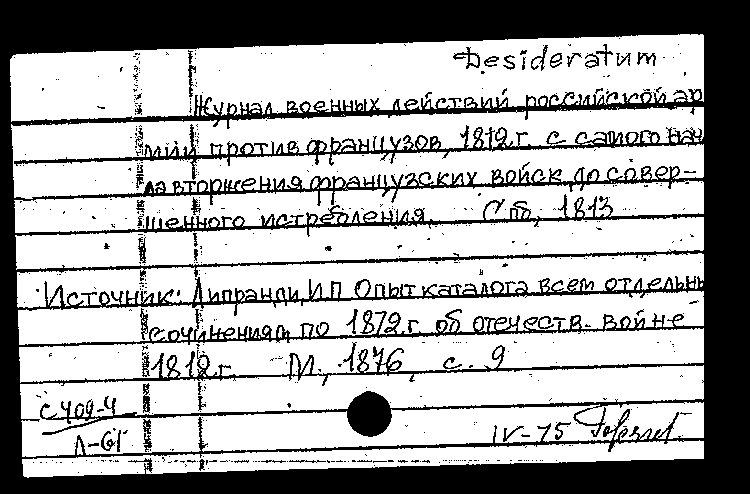 Desideratum
Журнал военных действий российской ар
мии против французов, 1812 г. с самого нач
ла вторжения французских войск до совер-
шенного истребления. Спб, 1813
Источник: Липранди, И.П. Опыт каталога всем отдельны
сочинениям по 1872 г. об отечеств. войне
1812 г. М., 1876, с. 9
С 409-4
Л-61
IV-75